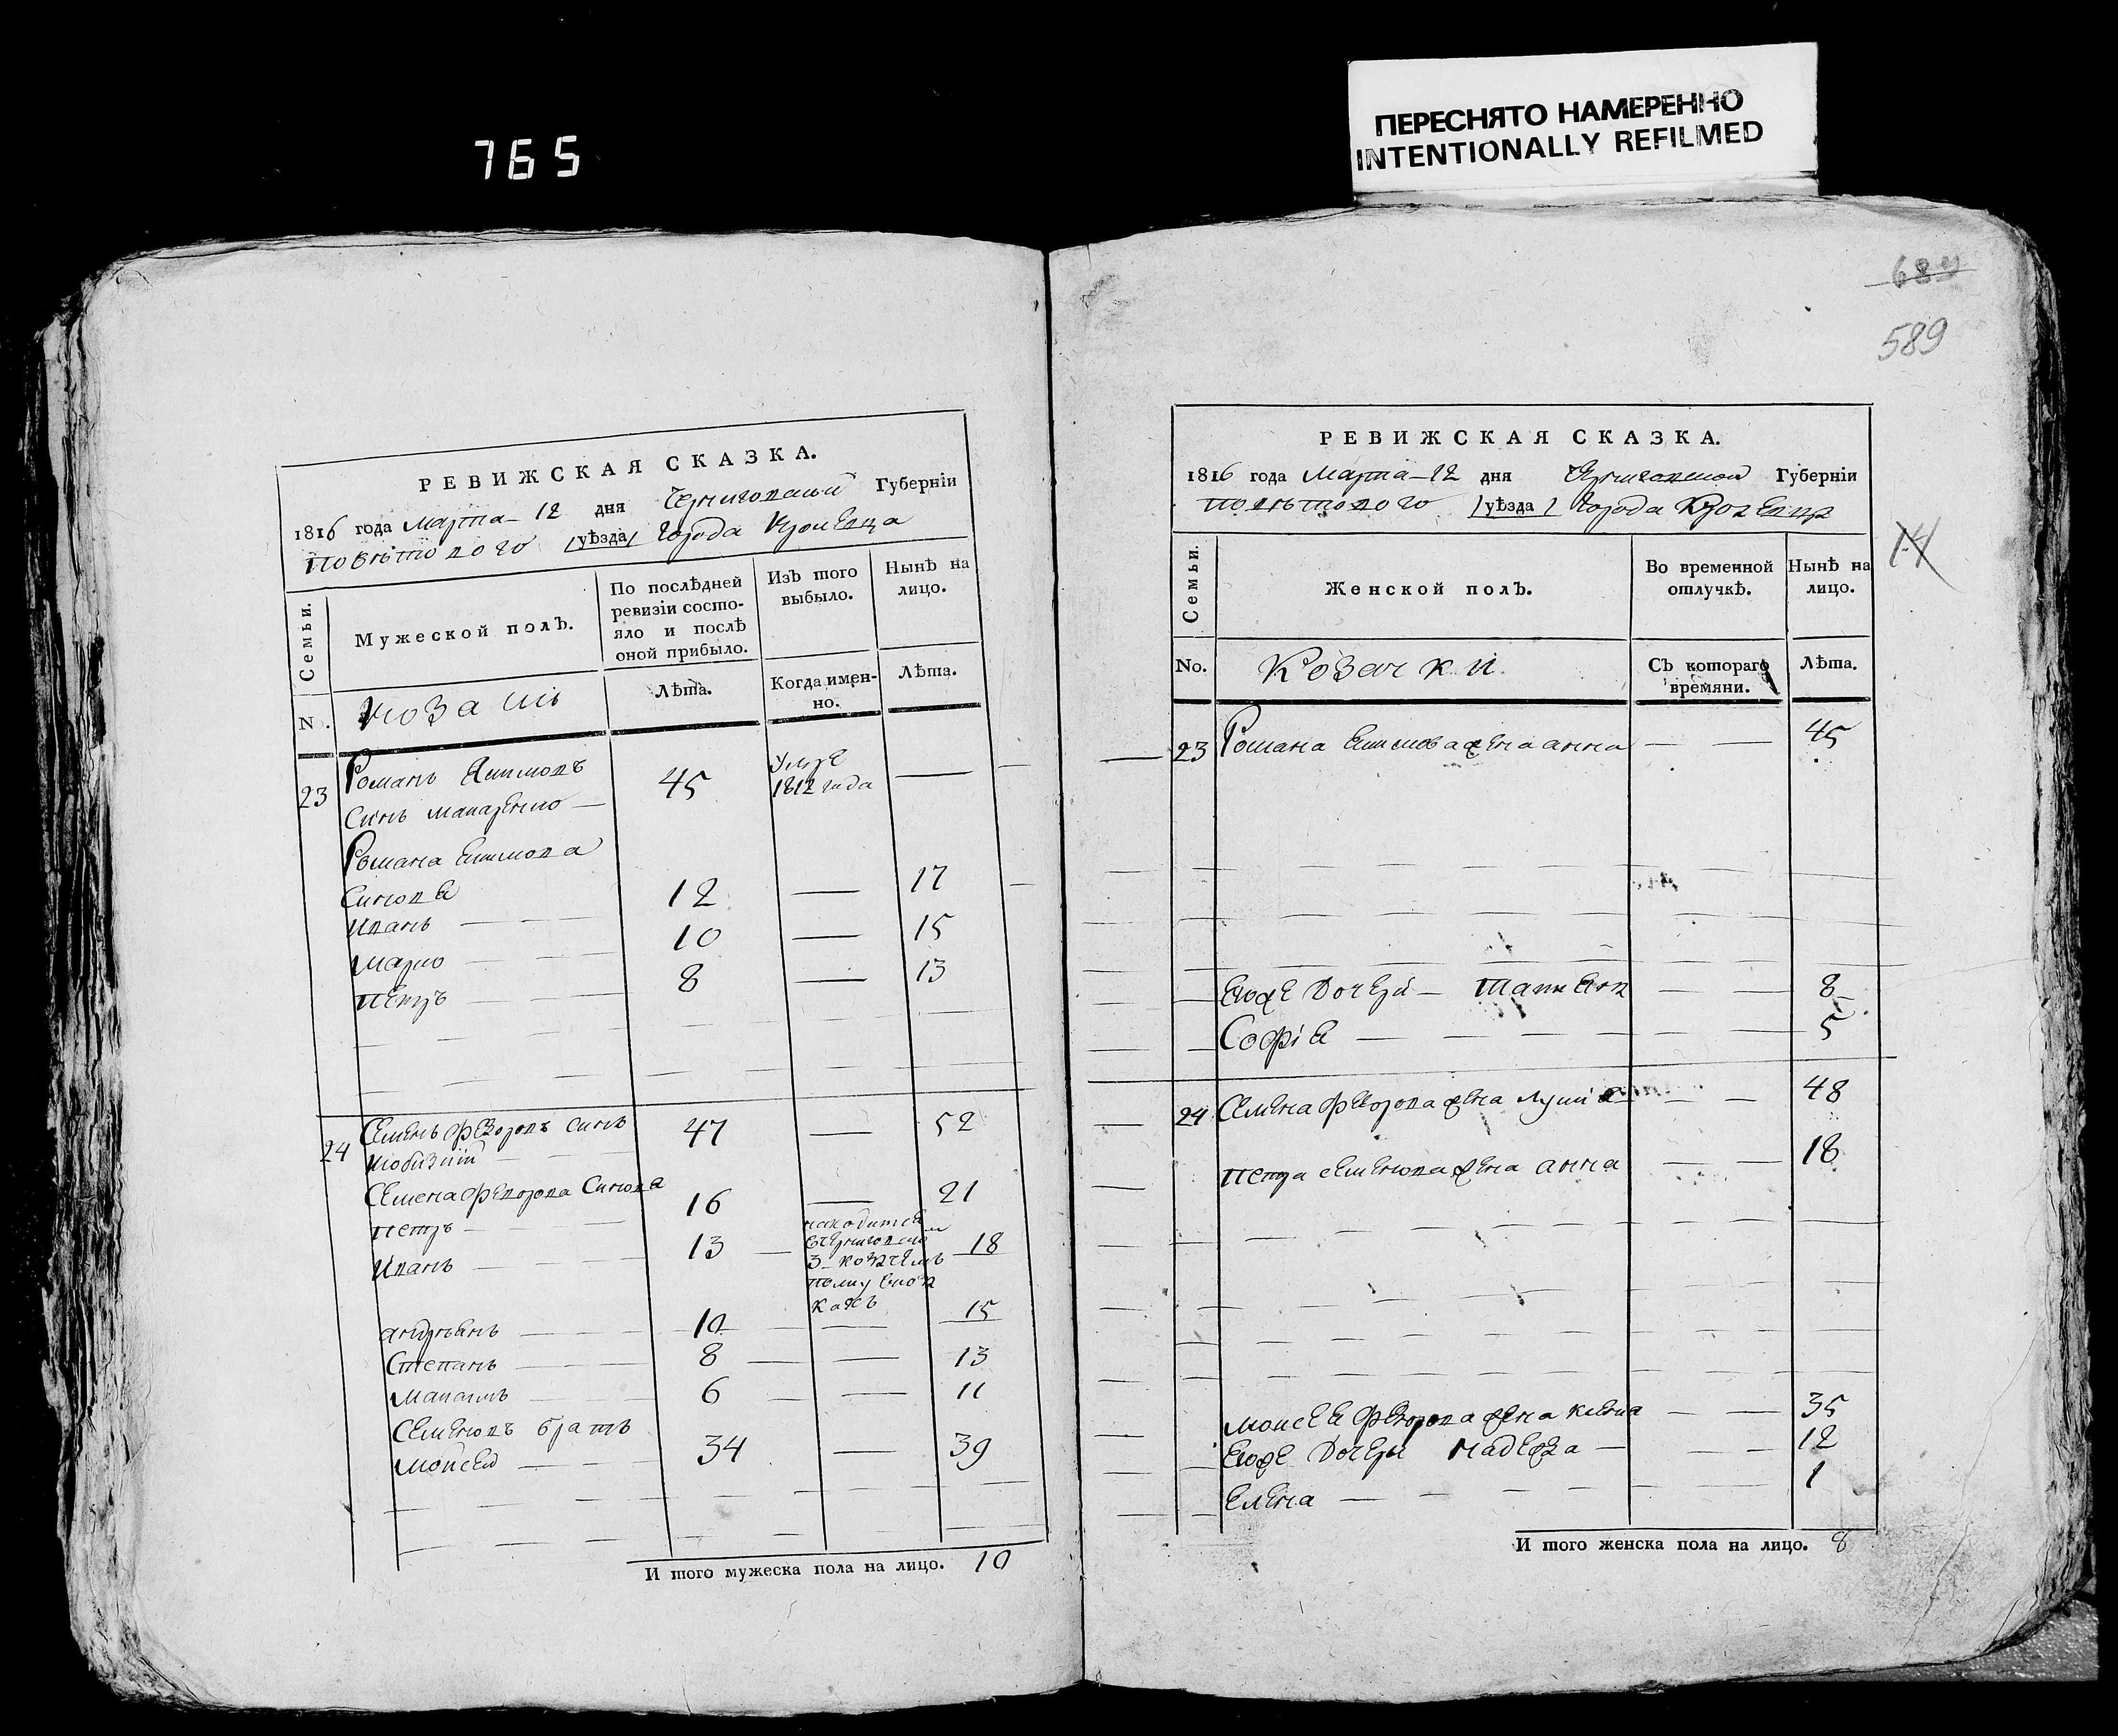 765
ПЕРЕСНЯТО НАМЕРЕННО
INTENTIONALLY REFILMED
589
РЕВИЖСКАЯ СКАЗКА.
1816 года Марта 12 дня Черниговской Губерніи
Повѣтового /уѣзда/ города Кролевца
Семьи.
Мужеской полъ.
По послѣдней
ревизіи состо-
яло и послѣ
оной прибыло.
Изъ того
выбыло.
Нынѣ на
лицо.
N.
Козаки
Лѣта.
Когда имен-
но.
Лѣта.
23 Романъ Якимовъ 45 Умре
Синъ Макаренко 1812 года
Романа Екимова
Синова
Иванъ 12 17
Марко 10 15
Петръ 8 13
24 Семенъ Федоровъ синъ 47 52
Семена Федорова Синова
Петръ 16 21
Иванъ 13 находится 18
в Черниговском
3 козачемъ
полку
андреянъ 10 15
Степанъ 8 13
6 11
Семеновъ братъ
Мойсей 34 39
И того мужеска пола на лицо. 10
РЕВИЖСКАЯ СКАЗКА.
1816 года Марта 12 дня Черниговской Губерніи
Повѣтового /уѣзда/ города Кролевца
14
Семьи.
Женской полъ.
Во временной
отлучкѣ.
Нынѣ на
лицо.
No.
Козачки
Съ котораго
времяни.
Лѣта.
23 Романа Екимова жена анна 45
Егоже Дочери Татиана 8
Софія 5
24 Семена Федорова жена 48
Петра Семенова жена анна 18
Мойсея Федорова жена 35
Егоже Дочери Надежа 12
Елена 1
И того женска пола на лицо. 8